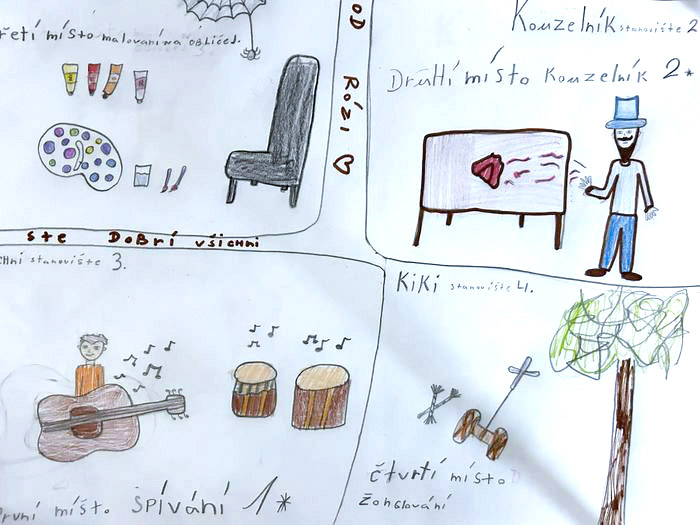 řetí místo malování na obličej.
OD RÓZI ♡
Kouzelník stanoviště 2
Druhí místo Kouzelník 2*
ste Dobrí všichni
chni stanoviště 3.
první místo Spívání 1*
Kiki stanoviště 4.
čtvrtí místo
Žonglování